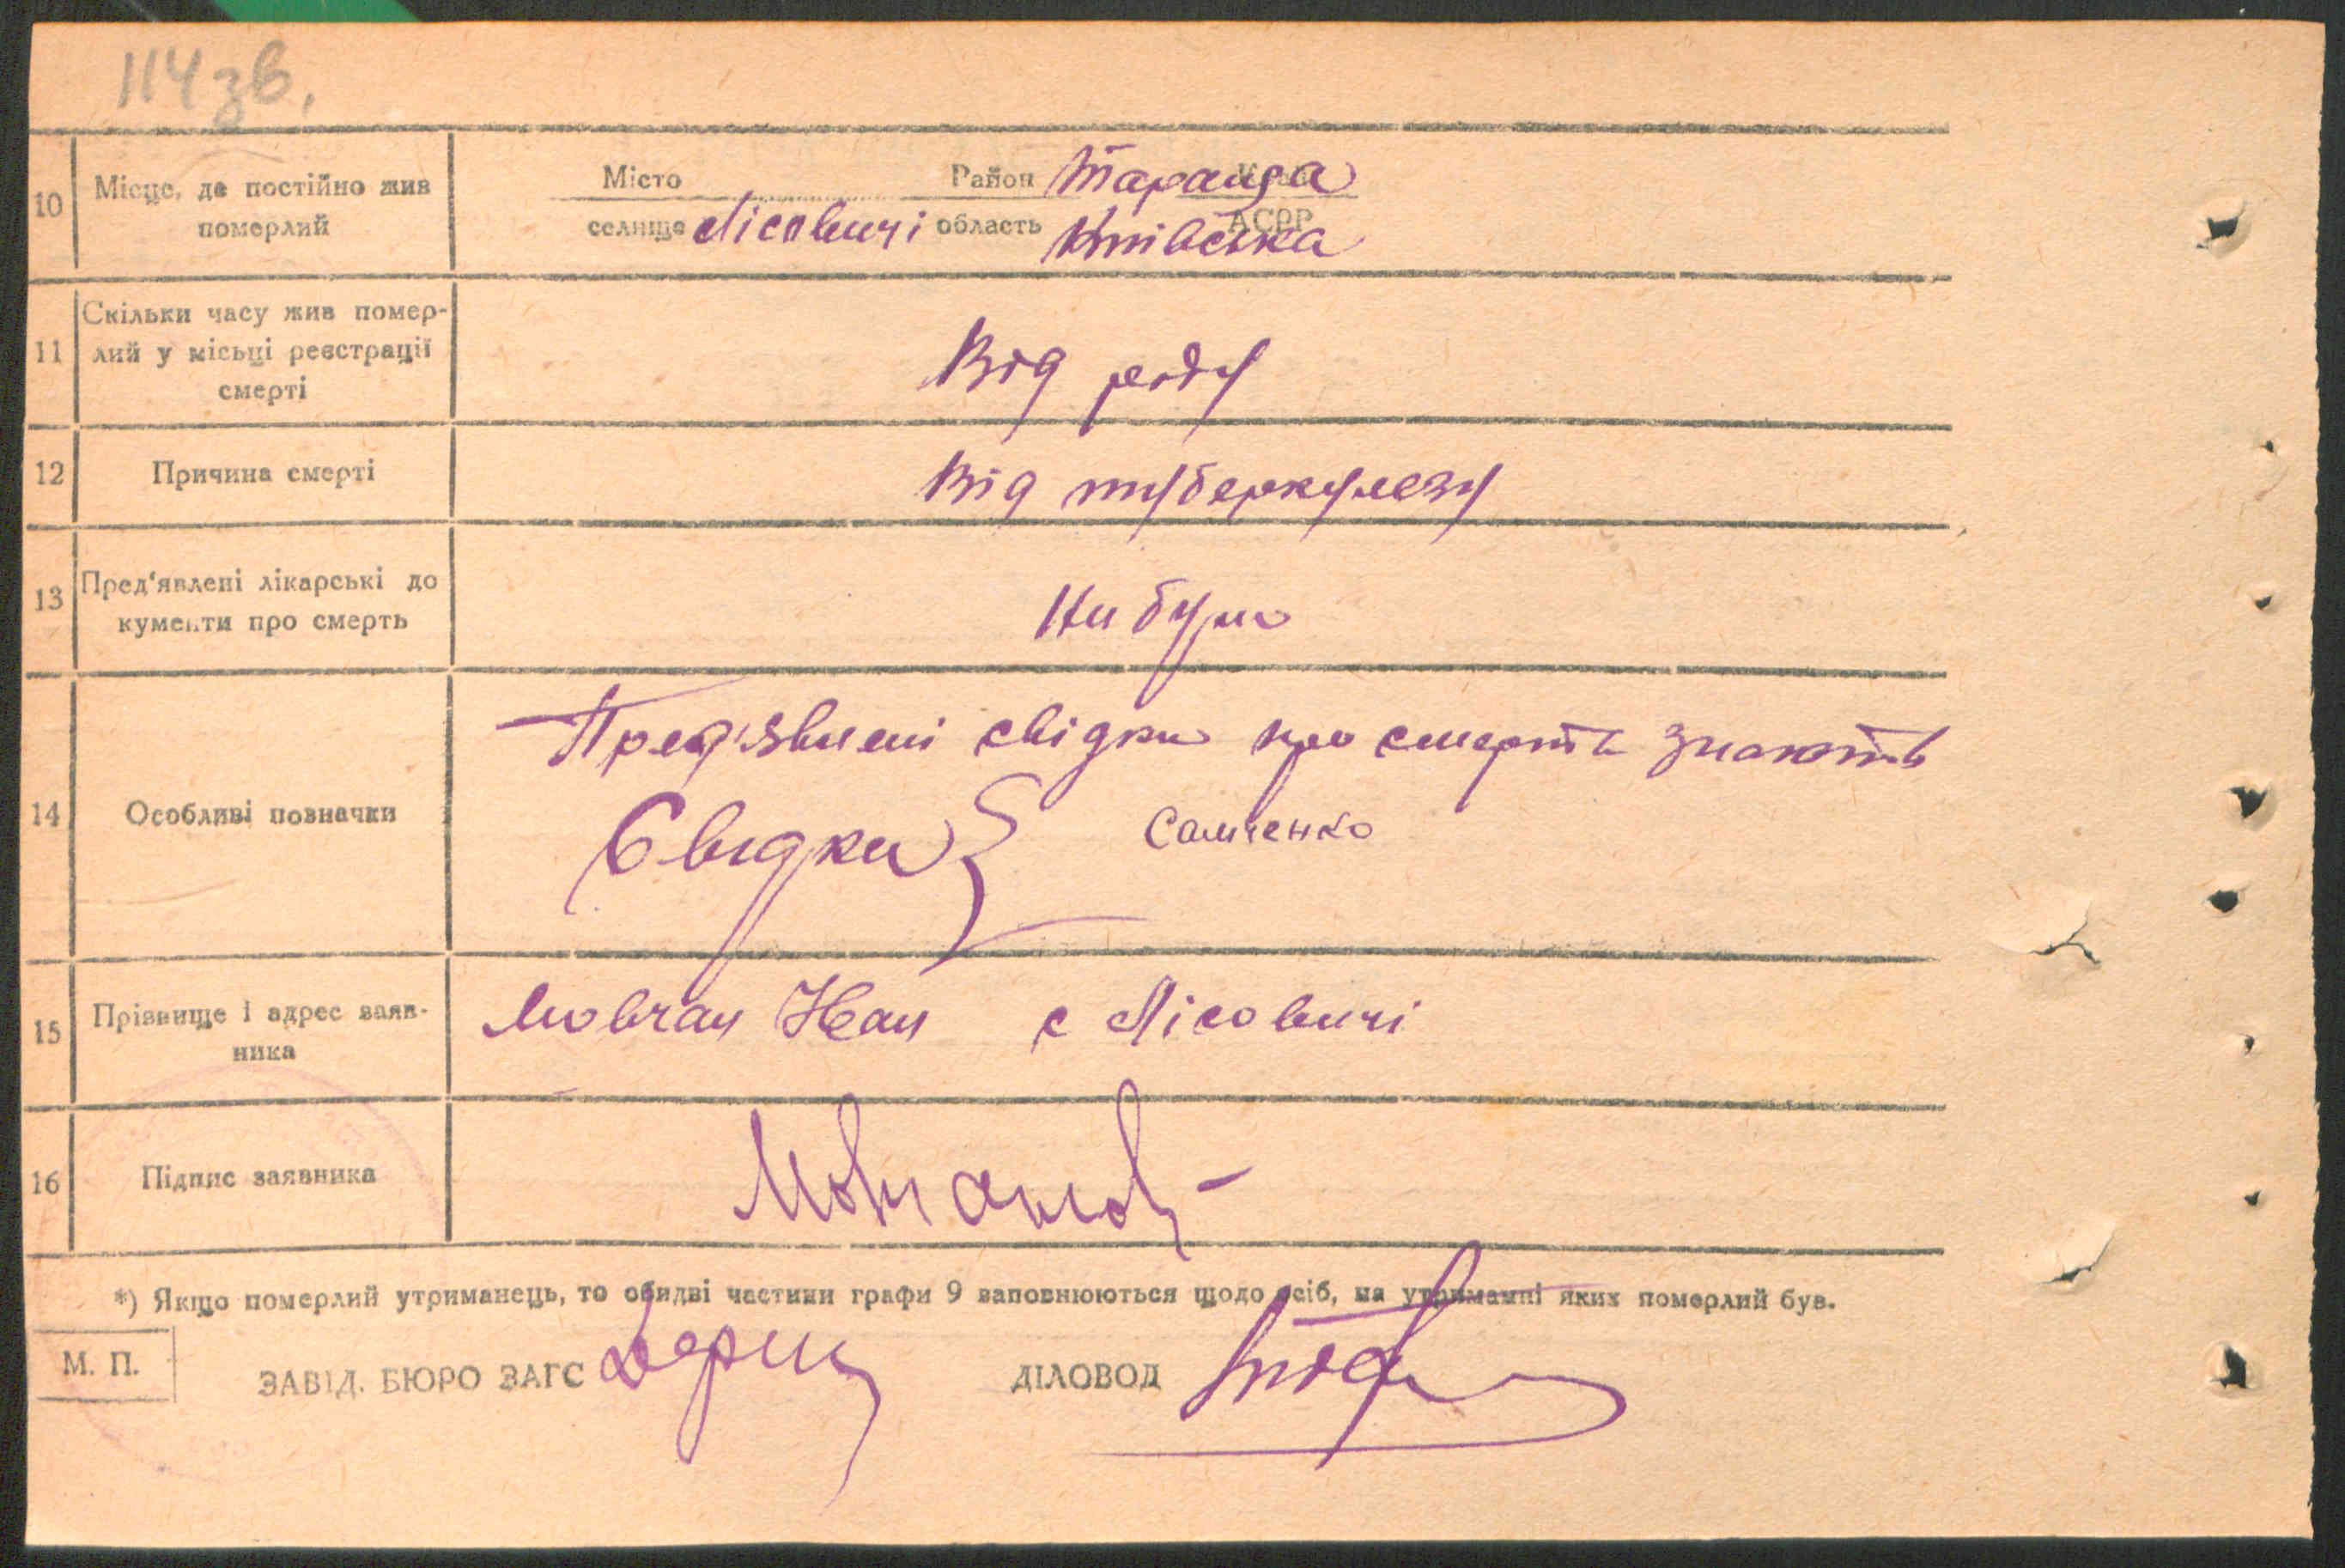 114 зв.
10 Місце, де постійно жив померлий
Місто Район Тараща Край
селище Лісовичі область Київська АСРР
11 Скільки часу жив помер-
лий у місьці реєстрації
смерті
Від роду
12 Причина смерті Від туберкульозу
13 Пред'явлені лікарські до
кументи про смерть
Ни було
14 Особливі позначки
Пред'явлені свідки про смерть знають
Свидки Самченко
15 Прізвище і адрес заяв-
ника
Мовчан Іван с Лісовичі
16 Підпис заявника Мовчан
*) Якщо померлий утриманець, то обидві частини графи 9 заповнюються щодо осіб, на утриманні яких померлий був.
М. П.
ЗАВІД. БЮРО ЗАГС ДІЛОВОД